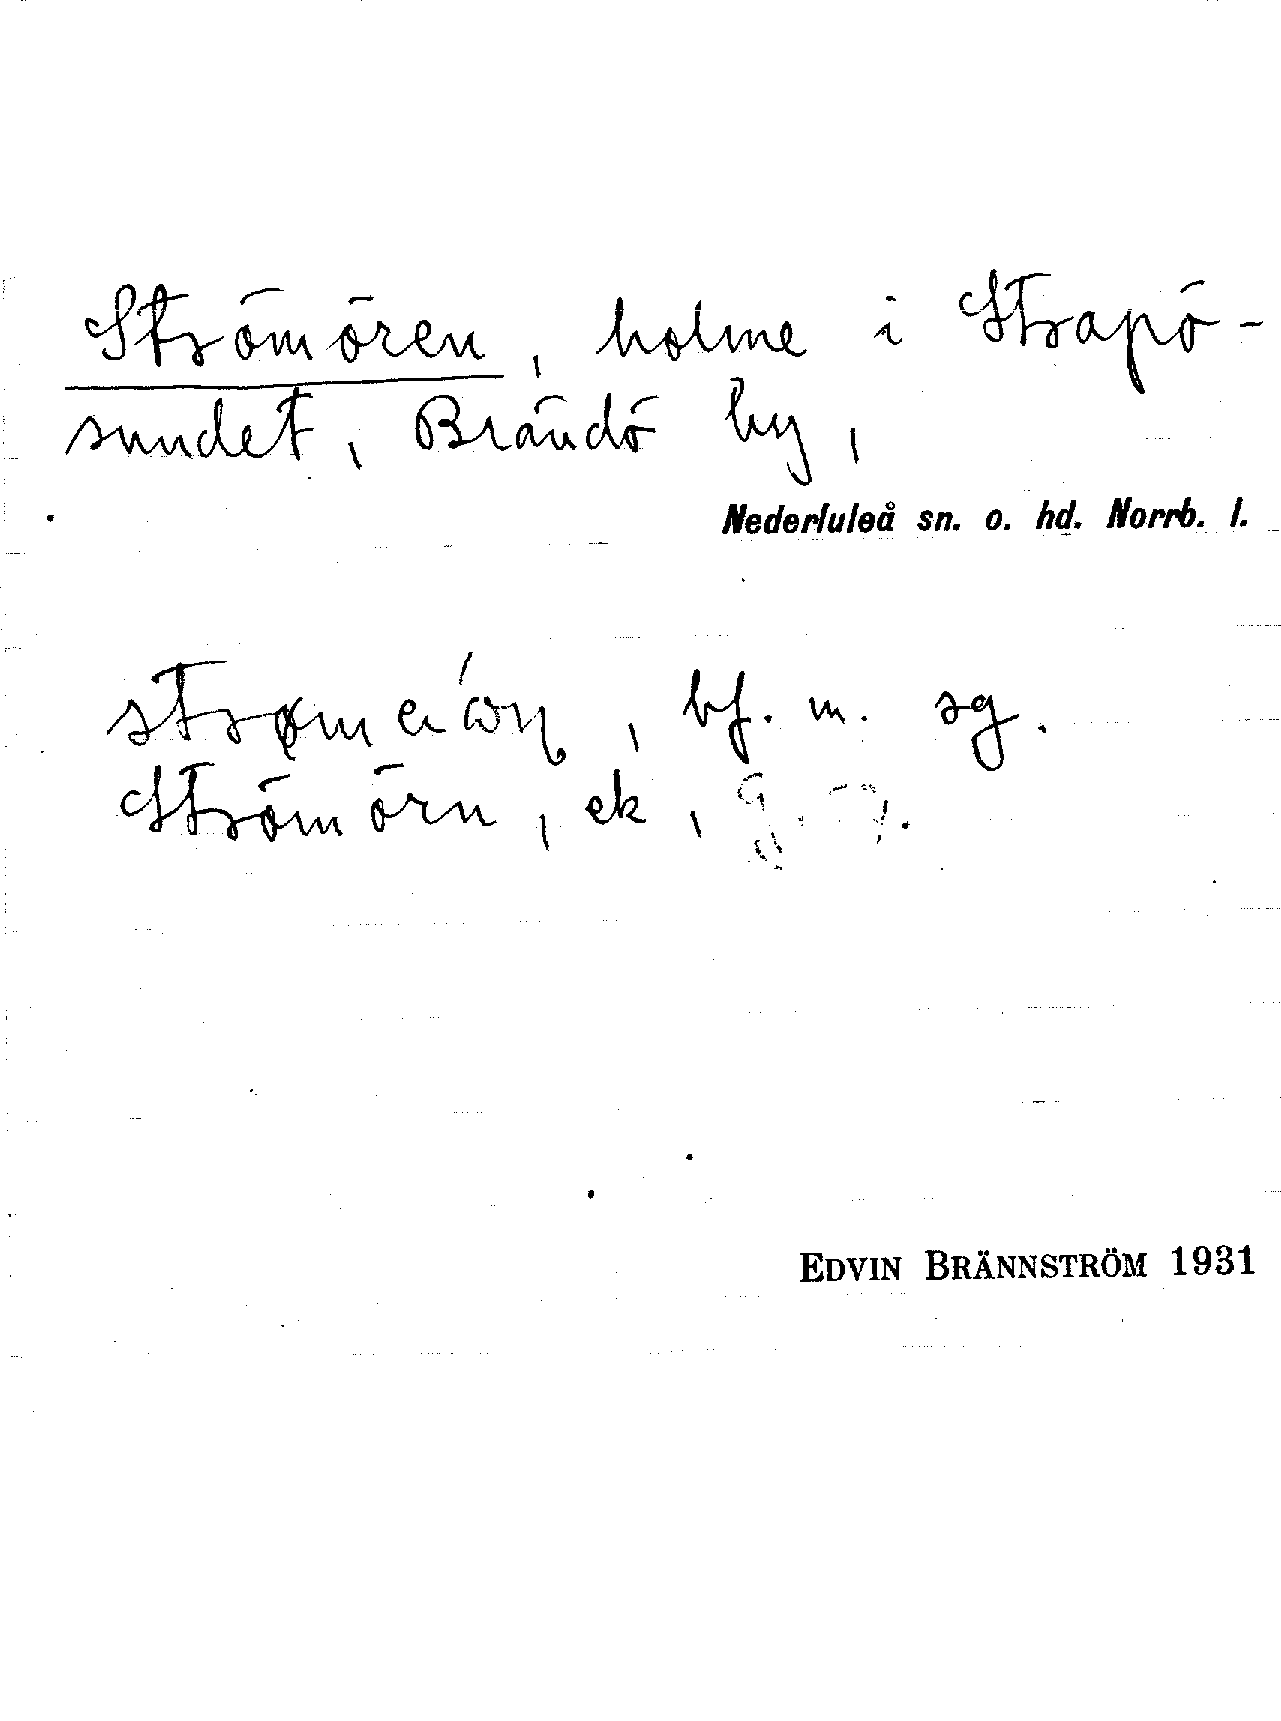 Strömören, holme i Strapö-
sundet, Brändö by,
Nederluleå sn. o. hd. Norrb. l.
bf. m. sg.
Strömörn, ek,
EDVIN BRÄNNSTRÖM 1931